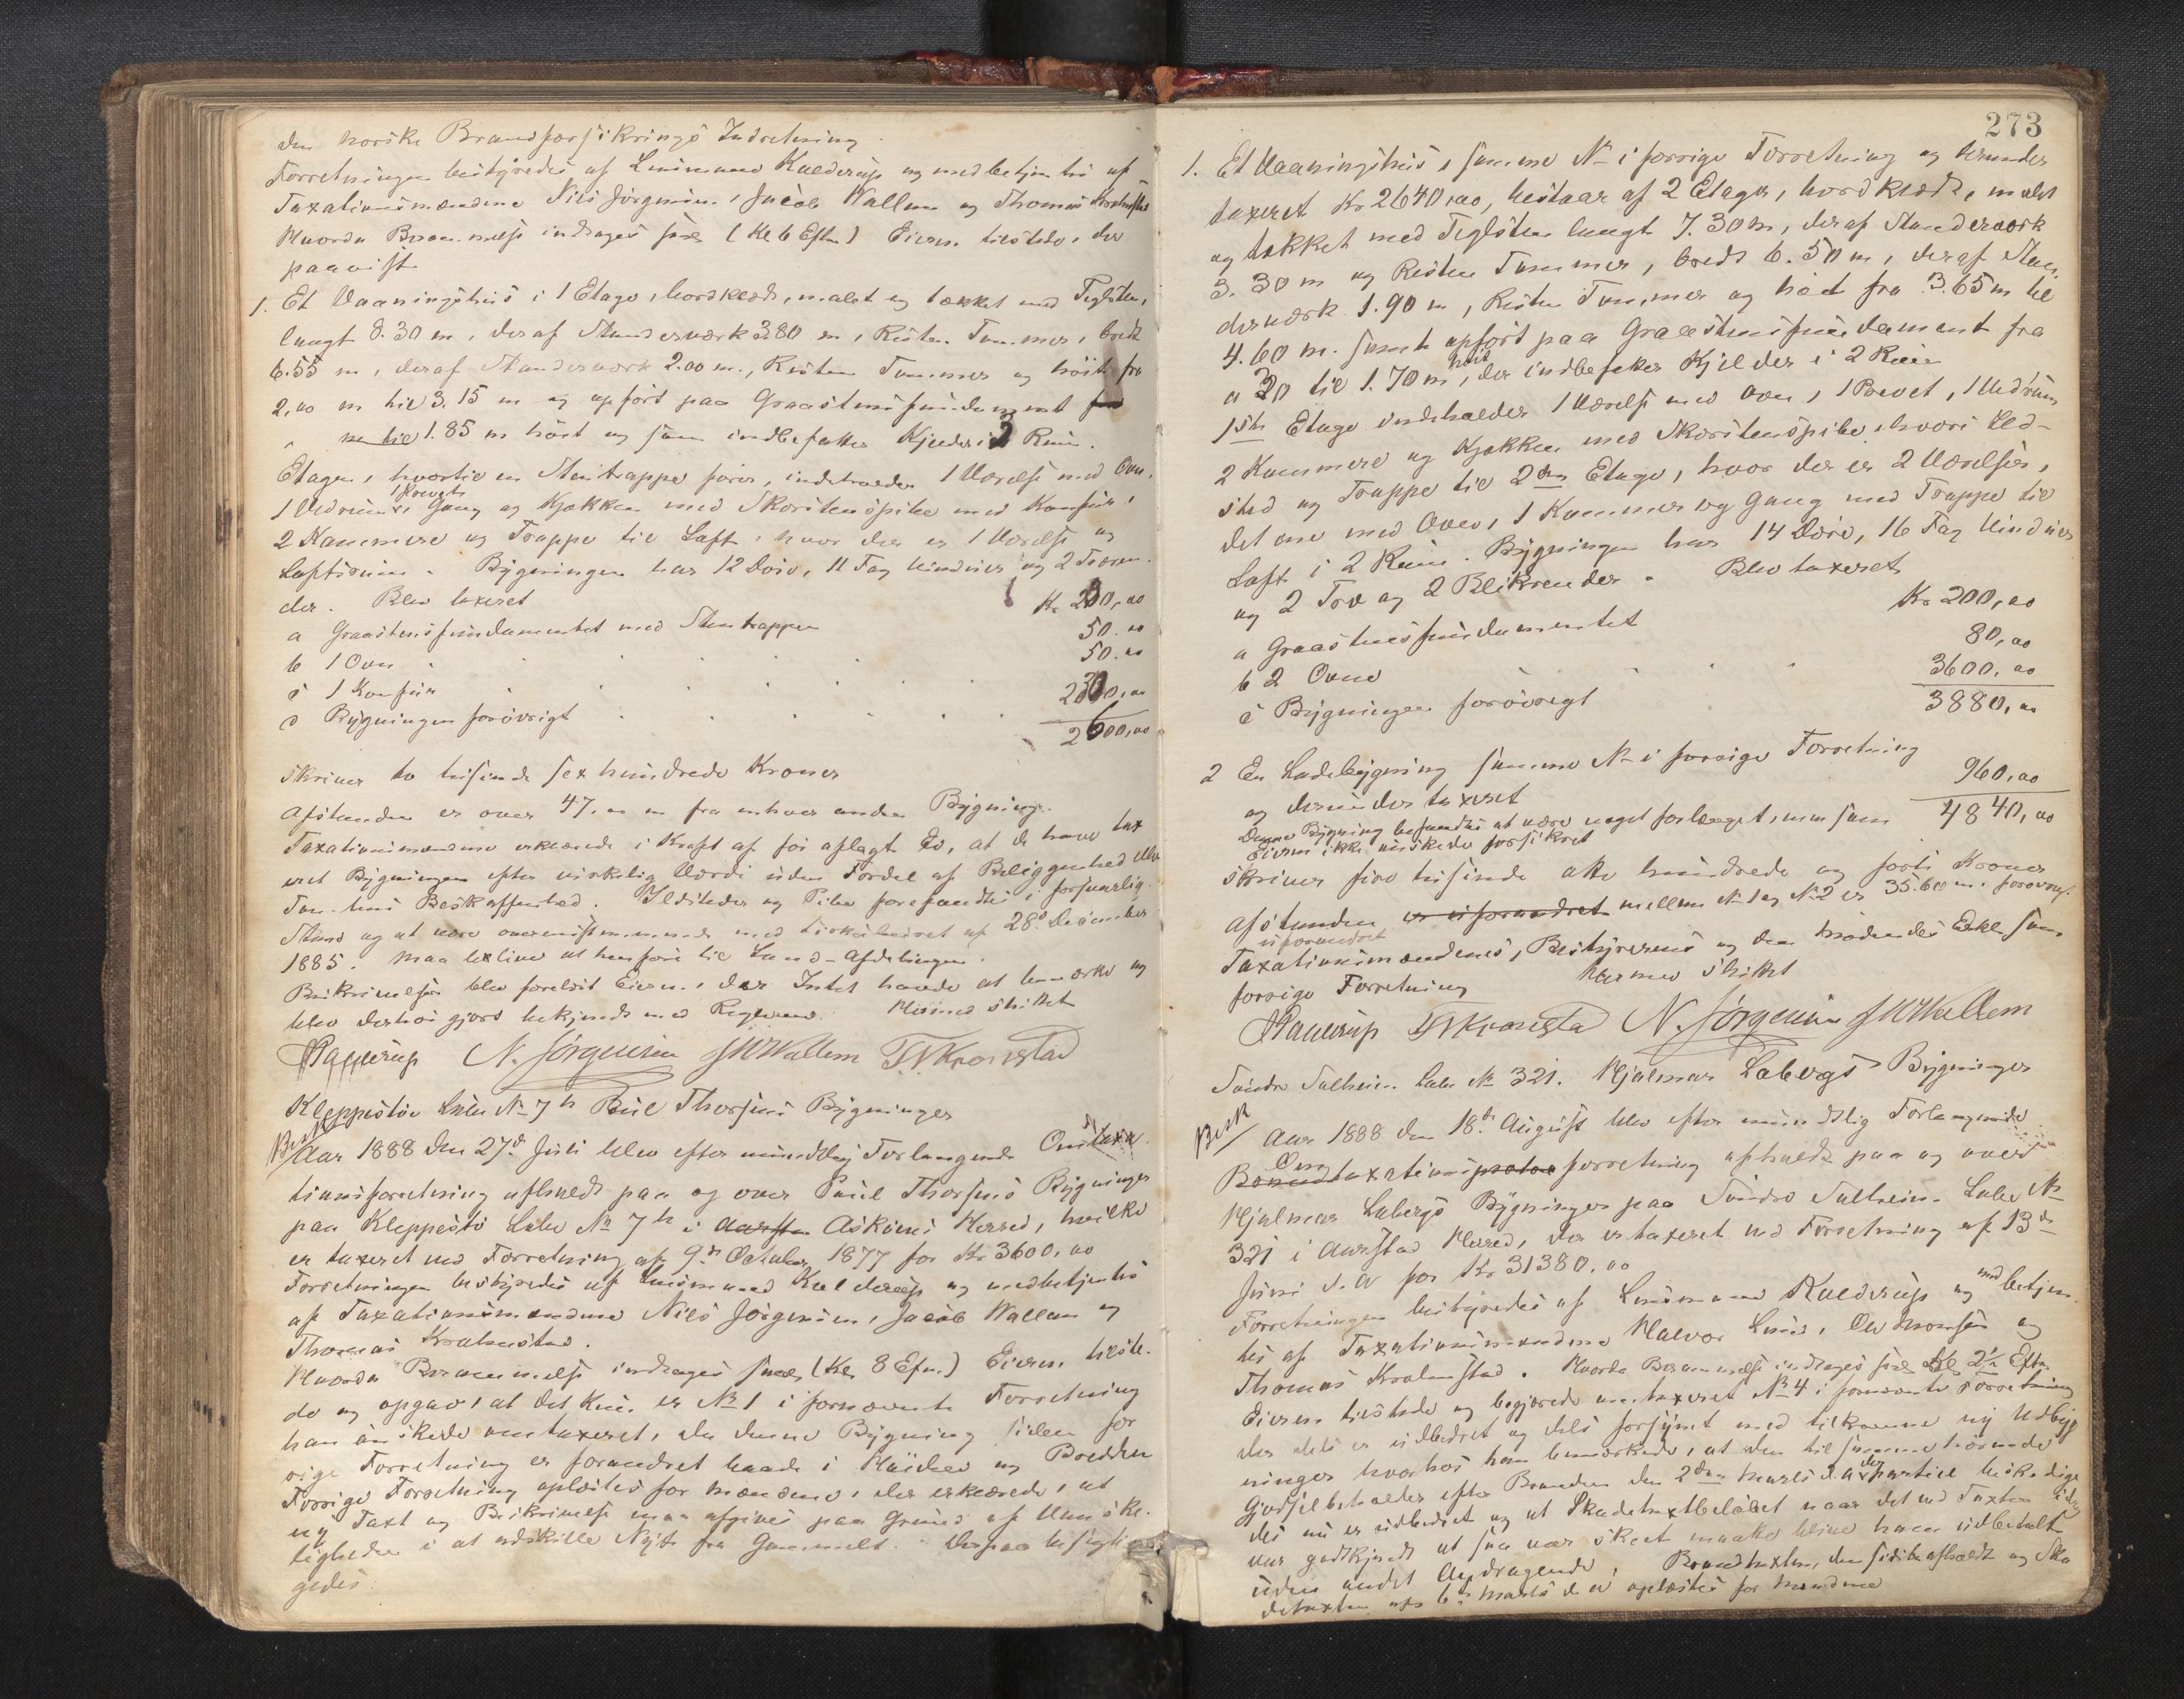 den norske Brandforsikrings Indretning.
Forretningen bestyredes af Lensmand Kulderup og medbetjentes af
Taxationsmændene Nils Jörgensen, Jacob Wallem og Thomas Kralmstad
Hvorda Berammelse indtages fra (Kl 6 Eftm) Eieren tilstede, der
paaviste
1. Et Vaaningshus i 1 Etage, bordklædt, malet og tækket med Teglsten,
langt 8.30 m, deraf Standerværk 3.80 m, Resten Tømmer, bredt
6.55 m, deraf Standerværk 2.00 m., Resten Tømmer og höit fra
2,00 m til 3.15 m og opfört paa Graastensfundament fra
m til 1.85 m höit og som indbefatter Kjelder i 2 Rum.
Etagen, hvortil en Stentrappe förer, indeholder 1 Værelse med Ovn,
1 Bevet
1 Vedrum, Gang og Kjøkken med Skorstenspibe med Komfur,
2 Kammere og Trappe til Loft, hvor der er 1 Værelse og
Loftsrum. Bygningen har 12 Döre, 11 Fag Vinduer og 2 Træren-
der. Blev taxeret
a Graastensfundamentet med Stentrappen Kr 200,00
b 1 Ovn 50.00
c 1 Komfur 50.00
d Bygningen forövrigt 2300,00
2600,00
skriver to tusinde sex hundrede Kroner
Afstanden er over 47.00 m fra enhver anden Bygning.
Taxationsmændene erklærede i Kraft af för aflagt Ed, at de have tax
eret Bygningen efter virkelig Værdi uden Fordel af Beliggenhed eller
Tomtens Beskaffenhed. Ildsteder og Piber forefandtes i forsvarlig
Stand og at være overensstemmende med Cirkulæret af 28de December
1885. Maa blive at henføre til Land-Afdelingen.
Beskrivelsen blev forelæst Eieren, der Intet havde at bemærke og
blev derhos gjort bekjendt med Reglerne. Hermed sluttet
Kaldrup N. Jörgensen JHWallem T.N Kronstad
Kleppestö Löbe No 7 b Poul Thorsens Bygninger
Besk
Aar 1888 den 27de Juli blev efter mundtlig Forlangende Omtaxa-
tionsforretning afholdt paa og over Poul Thorsens Bygninger
paa Kleppestö Löbe No 7 b i Aarsta Askøens Herred, hvilke
er taxeret ved Forretning af 9de October 1877 for Kr 3600.00
Forretningen bestyredes af Lensmand Kulderup og medbetjentes
af Taxationsmændene Nils Jörgensen, Jacob Wallem og
Thomas Kralmstad.
Hvorda Berammelse indtages fra (Kl 8 Efm.) Eieren tilste-
de og opgav, at det kun er No 1 i fornævnte Forretning
han önskede omtaxeret, da denne Bygning siden for
rige Forretning er forandret baade i Høiden og Bredden
Forrige Forretning oplæstes for Mændene, der erklærede, at
ny Taxt og Beskrivelse maa afgives paa Grund af Vanske-
ligheden i at udskille Nyt fra Gammelt. Derpaa besigti-
gedes

273
1. Et Vaaningshus, samme No i forrige Forretning og derunder
taxeret Kr 2640,00, bestaar af 2 Etager, bordklædt, malet
og tækket med Teglsten langt 7.30 m, deraf Standerværk
3.30 m og Resten Tømmer, bredt 6.50 m, deraf Stan-
derværk 1.90 m, Resten Tømmer og höit fra 3.65 m til
4.60 m. samt opfört paa Graastensfundament fra
0.30 til 1.70 m höit, der indbefatter Kjelder i 2 Rum
1ste Etage indeholder 1 Værelse med Ovn, 1 Bevet, 1 Vedrum
2 Kammere og Kjøkken med Skorstenspibe, hvori Ild-
sted og Trappe til 2den Etage, hvor der er 2 Værelser,
det ene med Ovn, 1 Kammer og Gang med Trappe til
Loft i 2 Rum. Bygningen har 14 Döre, 16 Fag Vinduer
og 2 Træ og 2 Blikrender. Blev taxeret
a Graastensfundamentet Kr 200,00
b 2 Ovne 80,00
c Bygningen forövrigt 3600.00
3880,00
2 En Ladebygning samme No i forrige Forretning
og derunder taxeret 960,00
Denne Bygning befandtes at være noget forlænget, men som 4840,00
Eieren ikke önskede forsikret
skriver fire tusinde otte hundrede og forti Kroner
Afstanden er uforandret mellem No 1 og No 2 er 35.60 m. forövrigt
uforandret
Taxationsmændenes, Bestyrerens og den mødendes Erkl. som
forrige Forretning Hermed sluttet
Kaldrup T.N Kronsta N. Jörgensen JHWallem
Söndre Solheim Löbe No 321. Hjalmar Løbergs Bygninger
Besk
Aar 1888 den 18de August blev efter mundtlig Forlangende
Om
Brandtaxationsforretning afholdt paa og over
Hjalmar Løbergs Bygninger paa Söndre Solheim Löbe No
321 i Aarstad Herred, der er taxeret ved Forretning af 13de
Juni d. A for Kr 31380.00
Forretningen bestyredes af Lensmand Kulderup og medbetjen-
tes af Taxationsmændene Halvor Lund, Ole Monsen og
Thomas Kralmstad. Hvorda Berammelse indtages fra Kl 2½ Eftm.
Eieren tilstede og begjærede omtaxeret No 4 i fornævnte Forretning
der dels er udbedret og dels forsynet med tilkomne ny Udbyg
ninger hvorhos han bemærkede, at den til samme hörende
Gjødselbeholder efter Branden den 2den Marts d.A. partiel beskadige
des nu er udbedret og at Skadetaxtbelöbet naar det ved Taxten idag
var godkjendt at saa var skeet maatte blive ham udbetalt
uden andet Andragende. Brandtaxten, den sidst afholdt og Ska
detaxten af 6te Marts d A oplæstes for Mændene